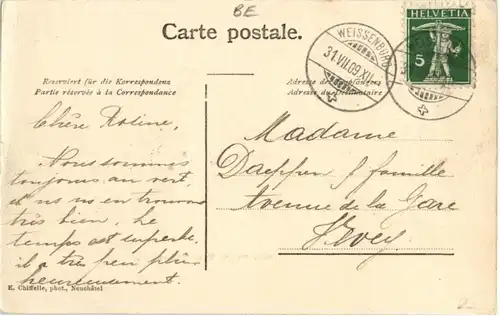 BE
Carte postale.
WEISSENBURG
31.VII.09.XII.
HELVETIA
5
Reserviert für die Korrespondenz
Partie réservée à la Correspondance
Adresse des Empfängers
Adresse du Destinataire
Chère Rosine,
Nous sommes
toujours au vert,
et ns ns en trouvons
très bien. Le
temps est superbe,
il a très peu plu
heureusement.
Madame
Daeppen & famille
Avenue de la Gare
Vevey
E. Chiffelle, phot., Neuchâtel